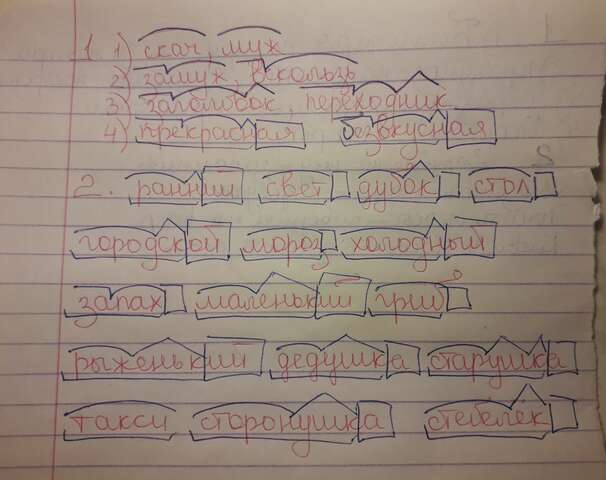 1 1) скач, муж
2) замуж, вскользь
3) заголовок, переходник
4) прекрасная безвкусная
2. ранний свет дубок стол
городской мороз холодный
запах маленький гриб
рыженький дедушка старушка
такси сторонушка стебелёк